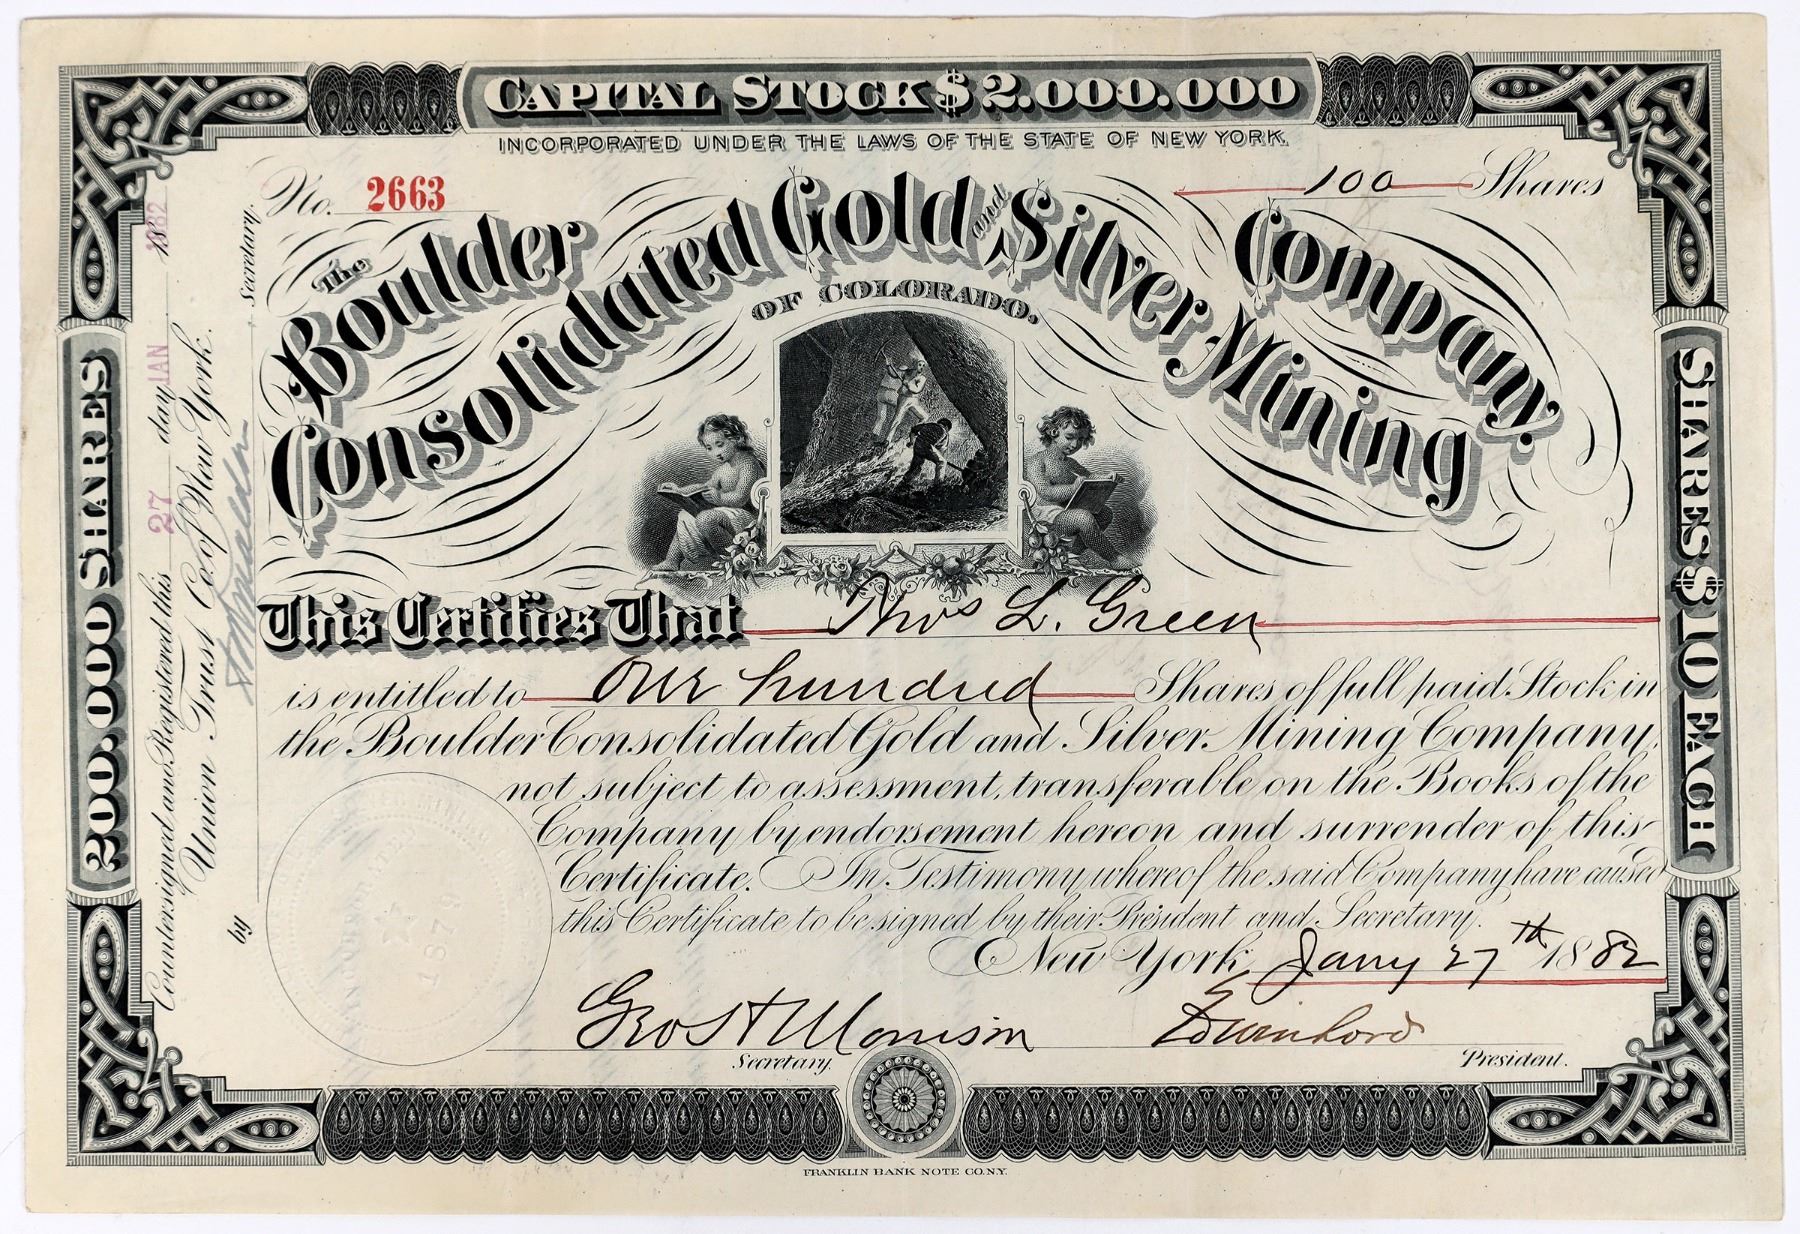 CAPITAL STOCK $2.000.000
INCORPORATED UNDER THE LAWS OF THE STATE OF NEW YORK.
No. 2663
100 Shares
The Boulder
Consolidated Gold and Silver Mining
Company.
OF COLORADO.
This Certifies That Thos L. Green
is entitled to One hundred Shares of full paid Stock in
the Boulder Consolidated Gold and Silver Mining Company,
not subject to assessment, transferable on the Books of the
Company by endorsement hereon and surrender of this
Certificate. In Testimony whereof the said Company have caused
this Certificate to be signed by their President and Secretary.
New York, Jany 27th 1882
Geo S H Morrison
Secretary.
President.
FRANKLIN BANK NOTE CO. N.Y.
200.000 SHARES
Countersigned and Registered this 27 day JAN 1882
Union Trust Co. of New York.
by Secretary.
SHARES $10 EACH
1879